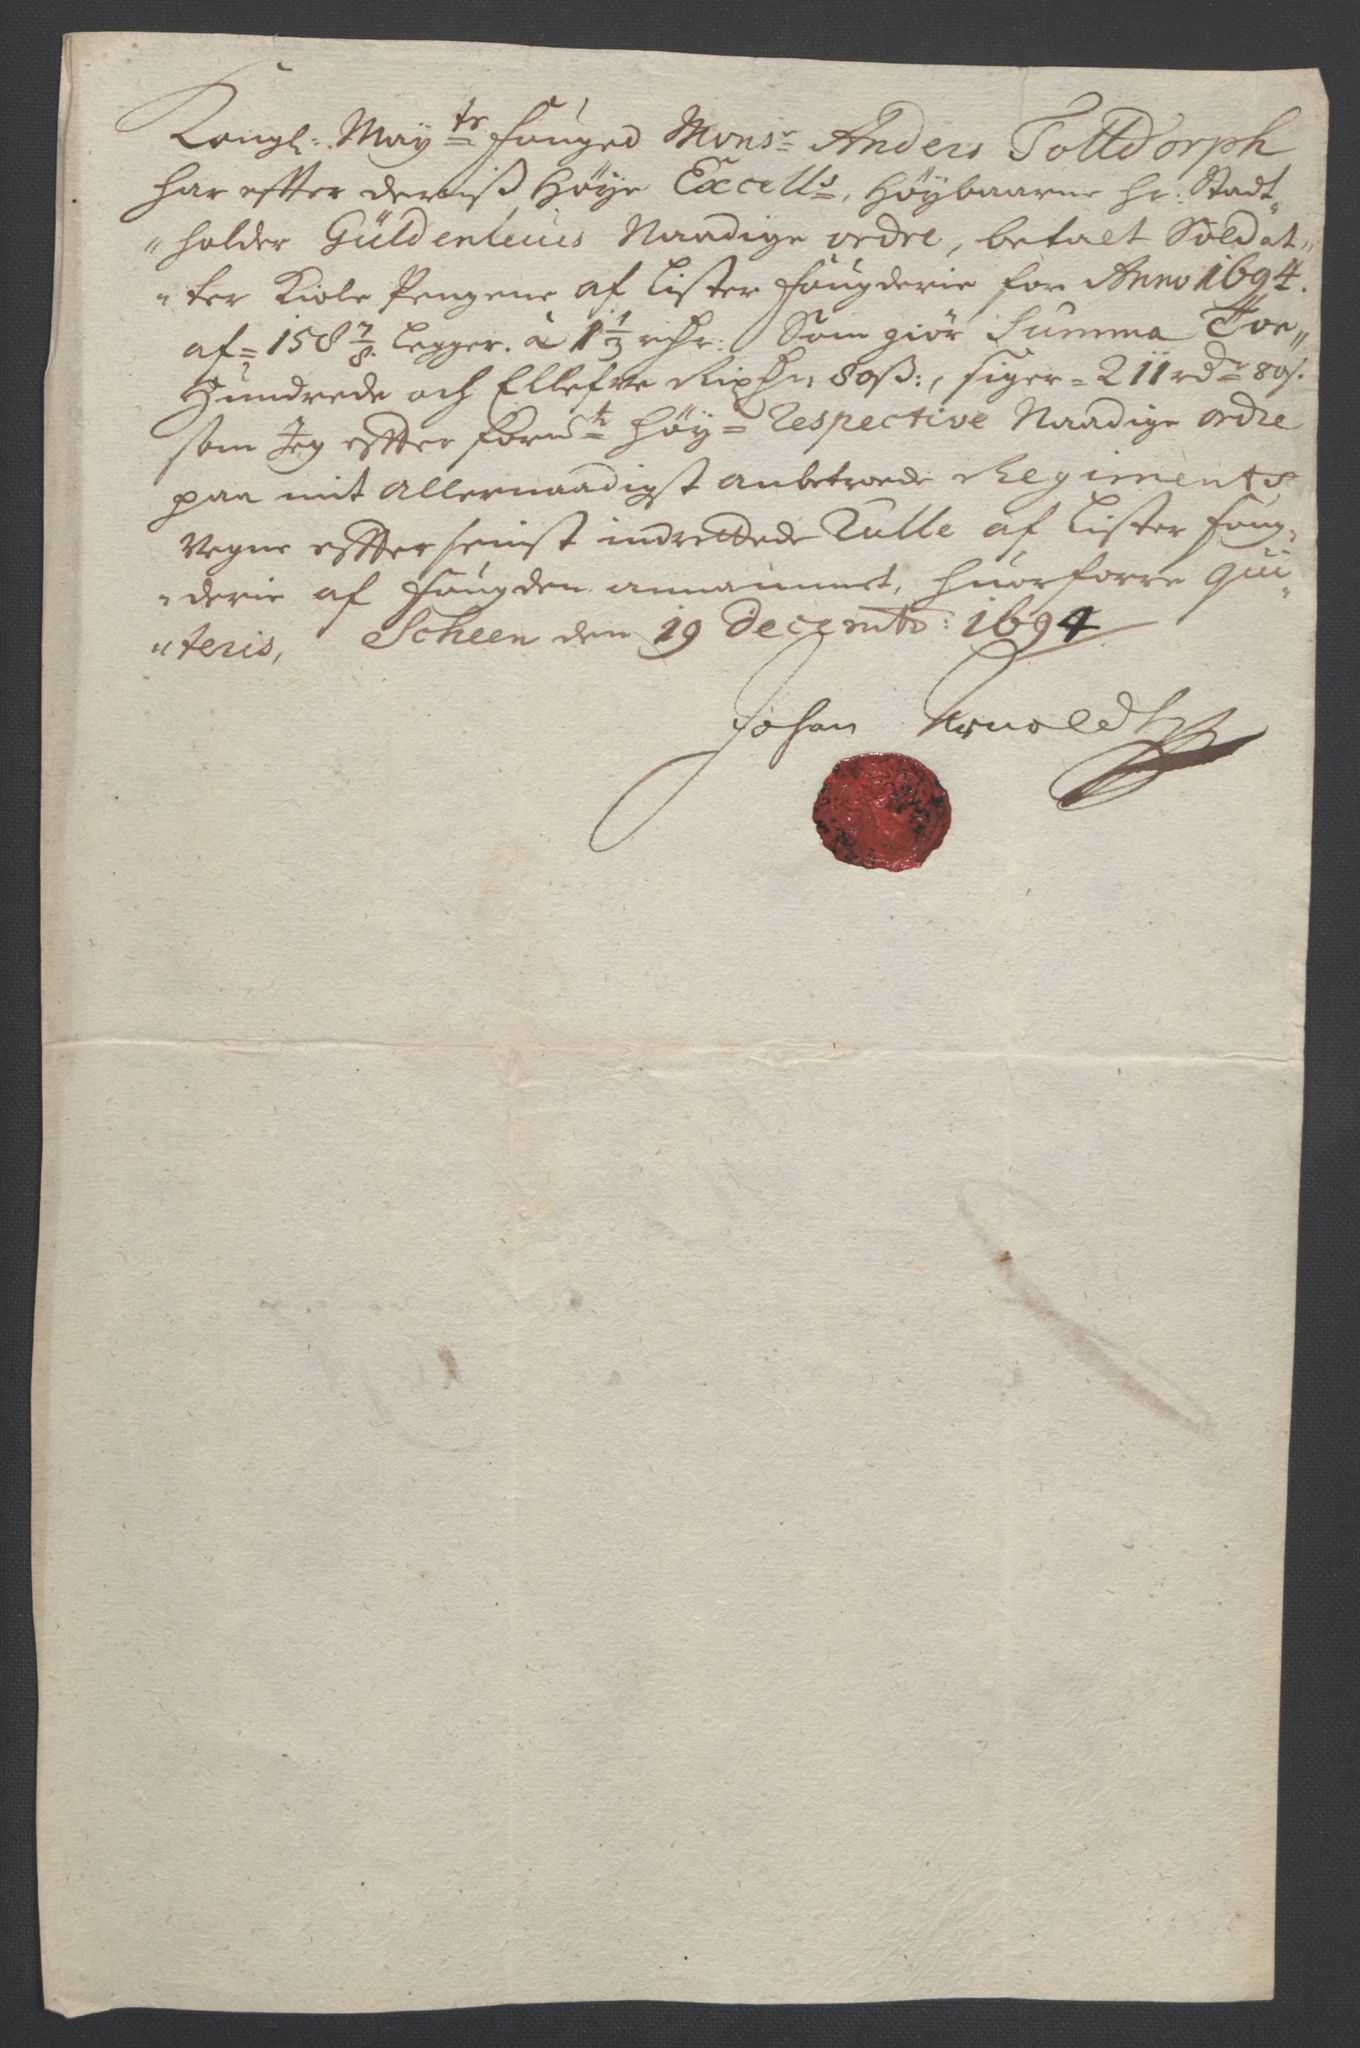 Kongl: Maytz fouged Monsr Anders Tolldorph
har effter deris Høye Excells, Høybaarne hr: Stadt¬
"holder Güldenleues Naadige ordre, betalt Soldat"
"ter Kiole Pengene af Lister fougderie for Anno 1694.
af = 158 7/8 Legger. a 1 1/3 rdr: Som giør Summa Toe"
Hundrede och Ellefve Rixdr, 80ß:, siger = 211 rdr 80s.
som Jeg effter formte høy = respective Naadige ordre
paa mit allernaadigst anbetroede Regiments
Vegne effter senist indrettede Rulle af Lister foug¬
"derie af fougden annammet, huorforre Qui"
"teris, Scheen den 19 Decembr: 1694
Johan Arnoldt